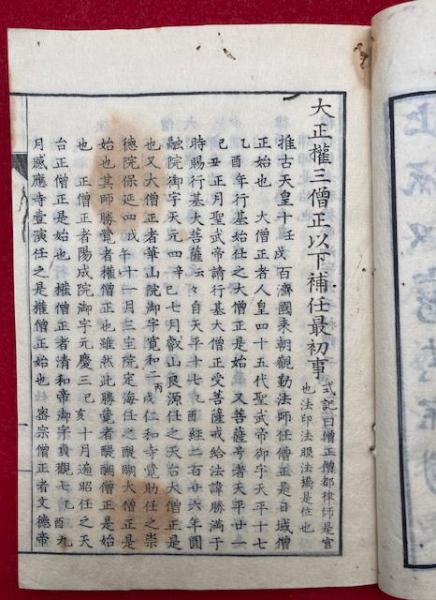 大正權三僧正以下補任最初事 式記曰僧正僧都律師是官
也法印法眼法橋是位也
推古天皇十壬戌百濟國來朝觀勤法師任僧正是日域僧
正始也 大僧正者人皇四十五代聖武帝御宇天平十七
乙酉年行基始任之大僧正是始 又菩薩号者天平廿一
己丑正月聖武帝請行基大僧正受菩薩戒給法諱勝滿于
時賜行基大菩薩云々自天平十七乙酉經二百廿六年圓
融院御宇天元四辛巳七月叡山良源任之天台大僧正是
也又大僧正者華山院御宇寬和二丙戌仁和寺寬助任之崇
德院保延四戊午十一月三宝院定海任之醍醐大僧正是
始也其師勝覺者權僧正也雖然此勝覺者醍醐僧正是始
也 正僧正者陽成院御宇元慶三己亥十月遍昭任之天
台正僧正是始也 權僧正者清和帝御宇貞觀七乙酉九
月感應寺壹演任之是權僧正始也 密宗僧正者文德帝